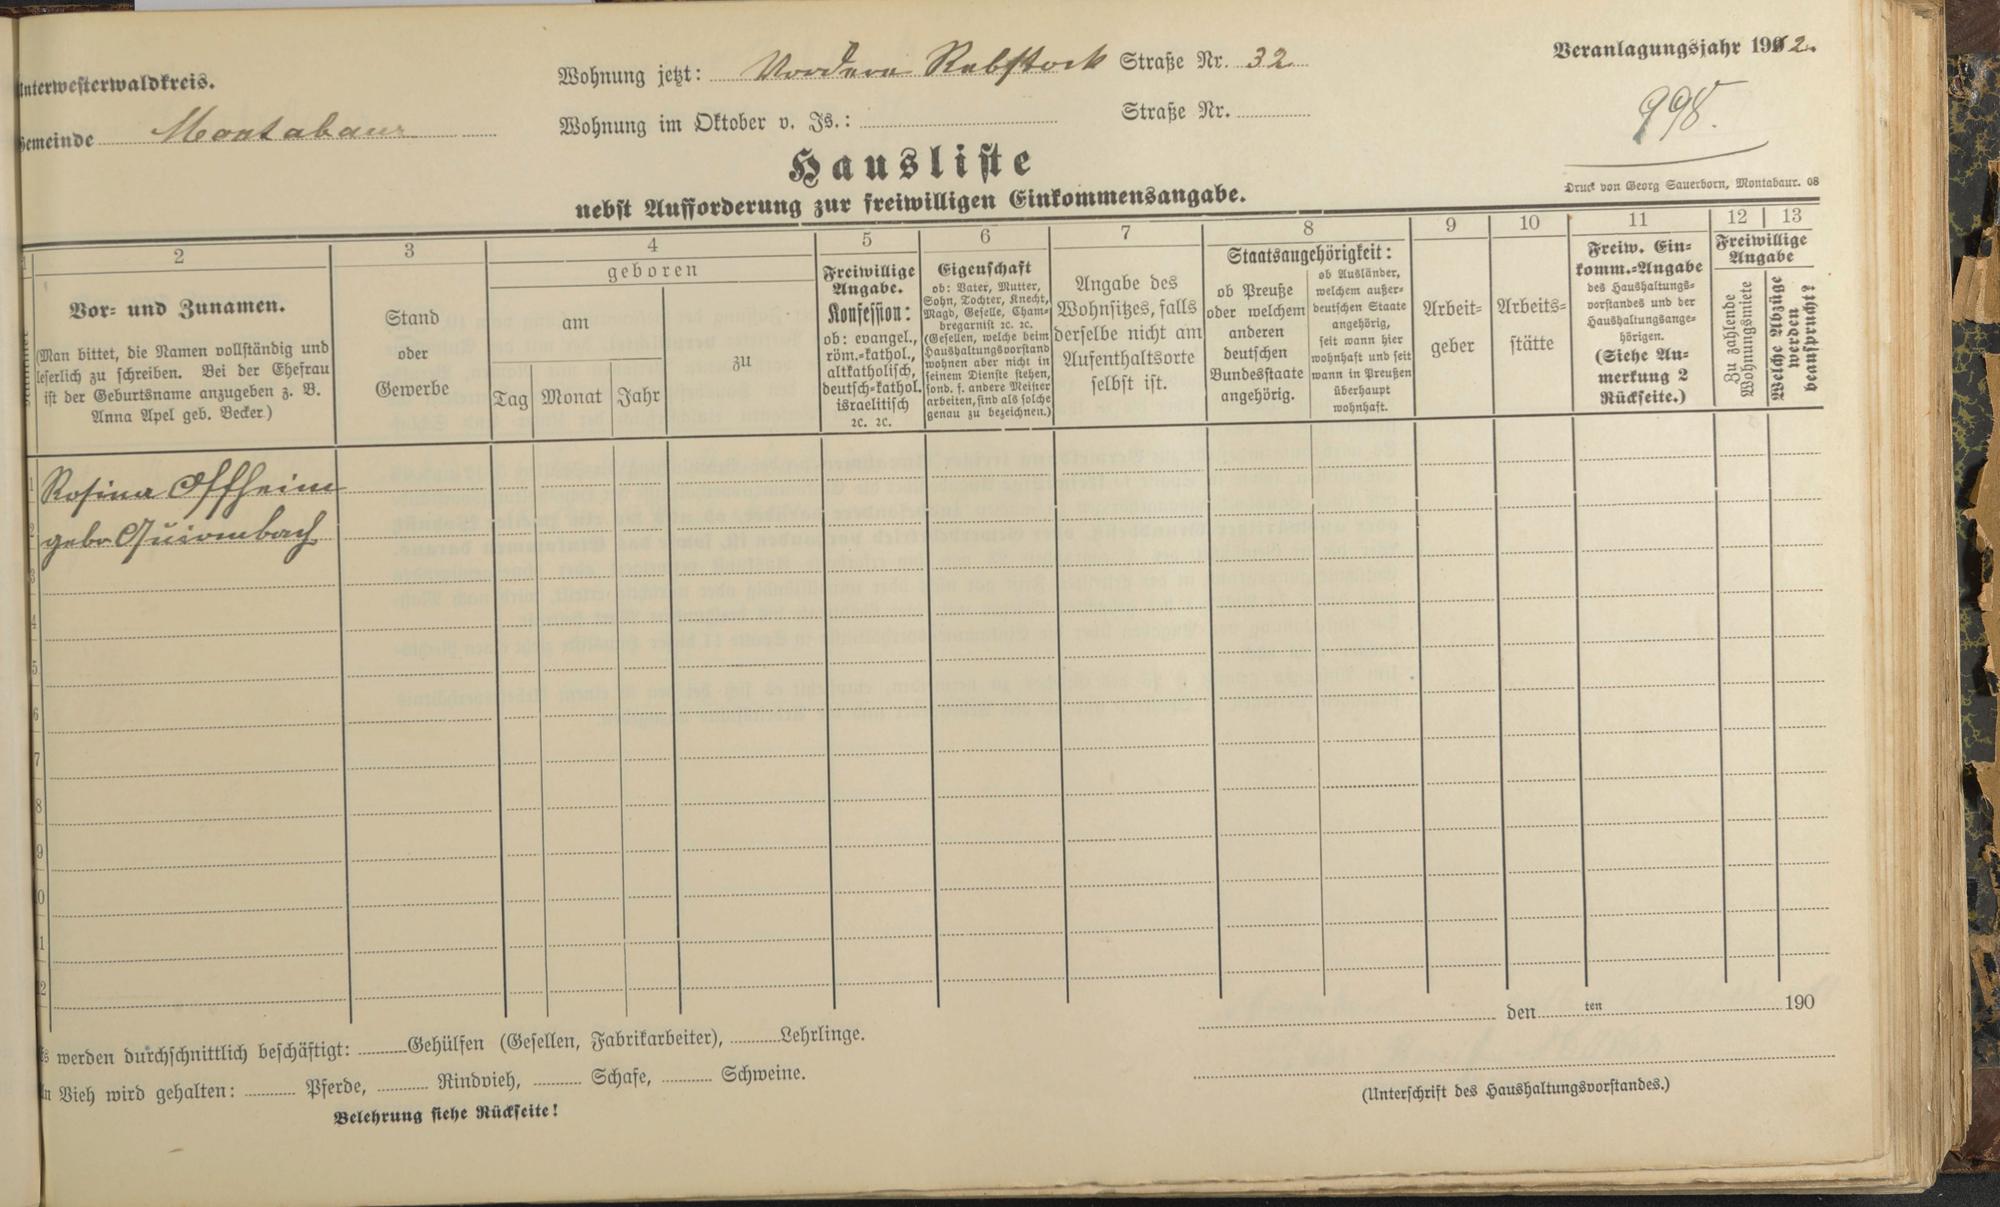 Unterwesterwaldkreis.
Gemeinde Montabaur
Wohnung jetzt: Vordere Rebstock Straße Nr. 32
Wohnung im Oktober v. Js.: Straße Nr.
Veranlagungsjahr 1912.
998.
Hausliste
nebst Aufforderung zur freiwilligen Einkommensangabe.
Druck von Georg Sauerborn, Montabaur. 08
1
2
Vor- und Zunamen.
(Man bittet, die Namen vollständig und
leserlich zu schreiben. Bei der Ehefrau
ist der Geburtsname anzugeben z. B.
Anna Apel geb. Becker)
3
Stand
oder
Gewerbe
4
geboren
am
Tag Monat Jahr
zu
5
Freiwillige
Angabe.
Konfession:
ob: evangel.,
röm.-kathol.,
altkatholisch,
deutsch-kathol.
israelitisch
ꝛc. ꝛc.
6
Eigenschaft
ob: Vater, Mutter,
Sohn, Tochter, Knecht,
Magd, Geselle, Cham-
bregarnist ꝛc. ꝛc.
(Gesellen, welche beim
Haushaltungsvorstand
wohnen aber nicht in
seinem Dienste stehen,
sond. f. andere Meister
arbeiten, sind als solche
genau zu bezeichnen.)
7
Angabe des
Wohnsitzes, falls
derselbe nicht am
Aufenthaltsorte
selbst ist.
8
Staatsangehörigkeit:
ob Preuße
oder welchem
anderen
deutschen
Bundesstaate
angehörig.
ob Ausländer,
welchem außer-
deutschen Staate
angehörig,
seit wann hier
wohnhaft und seit
wann in Preußen
überhaupt
wohnhaft.
9
Arbeit-
geber
10
Arbeits-
stätte
11
Freiw. Ein-
komm.-Angabe
des Haushaltungs-
vorstandes und der
Haushaltungsange-
hörigen.
(Siehe An-
merkung 2
Rückseite.)
12 13
Freiwillige
Angabe
Zu zahlende
Wohnungsmiete
Welche Abzüge
werden
beansprucht?
1 Rosina Offheim
2 gebr Quirmbach
3
4
5
6
7
8
9
10
11
12
Es werden durchschnittlich beschäftigt: Gehülfen (Gesellen, Fabrikarbeiter), Lehrlinge.
An Vieh wird gehalten: Pferde, Rindvieh, Schafe, Schweine.
Belehrung siehe Rückseite!
den ten 190
(Unterschrift des Haushaltungsvorstandes.)